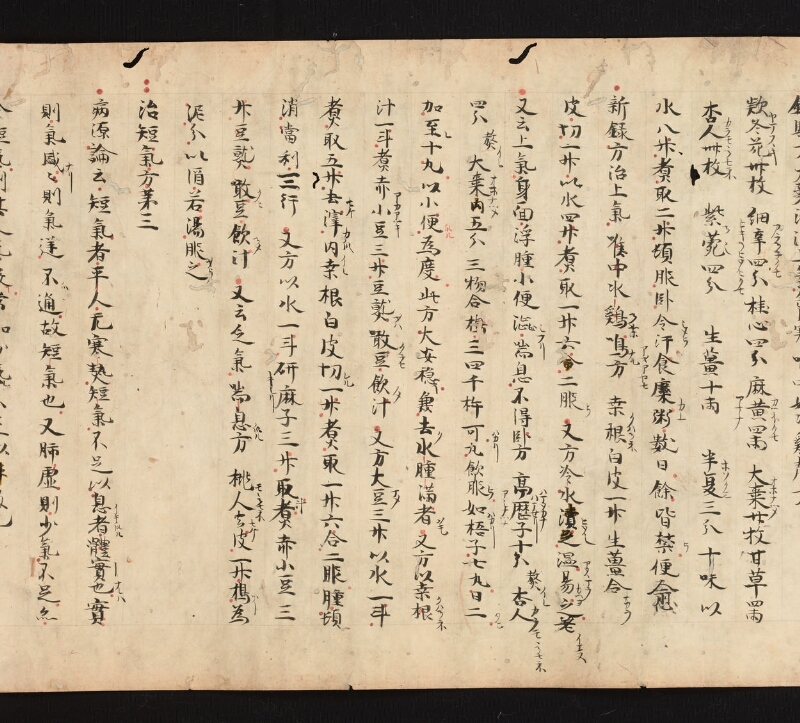 欵冬花卅枚 細辛四分 桂心四分 麻黄四兩 大棗廿枚 甘草四兩
杏人卅枚 紫菀四分 生薑十兩 半夏三分 十味以
水八升煮取二升頓服卧令汗食糜粥數日餘皆禁便愈
新録方治上氣喉中水鷄鳴方 桒根白皮一升生薑合
皮切一升以水四升煮取一升六合二服 又方冷水漬之温易之老
又云上氣身面浮腫小便澁喘息不得卧方 葶歴子十分 杏人
四分 熬 大棗肉五分 三物合擣三四千杵可丸飲服如梧子七丸日二
加至十九以小便為度此方大安穩 兼去水腫滿者 又方以桒根
汁一斗煮赤小豆三升豆熟噉豆飲汁 又方大豆三升以水一斗
煮取五升去滓内桒根白皮切一升煮取一升六合二服腫頓
消當利三行 又方以水一斗研麻子三升取煮赤小豆三
升豆熟噉豆飲汁 又云乏氣喘息方 桃人去皮一升擣為
泥分以酒若湯服之
治短氣方第三
病源論云短氣者平人无寒熱短氣不足以息者體實也實
則氣盛々則氣逆不通故短氣也又肺虚則少氣不足然